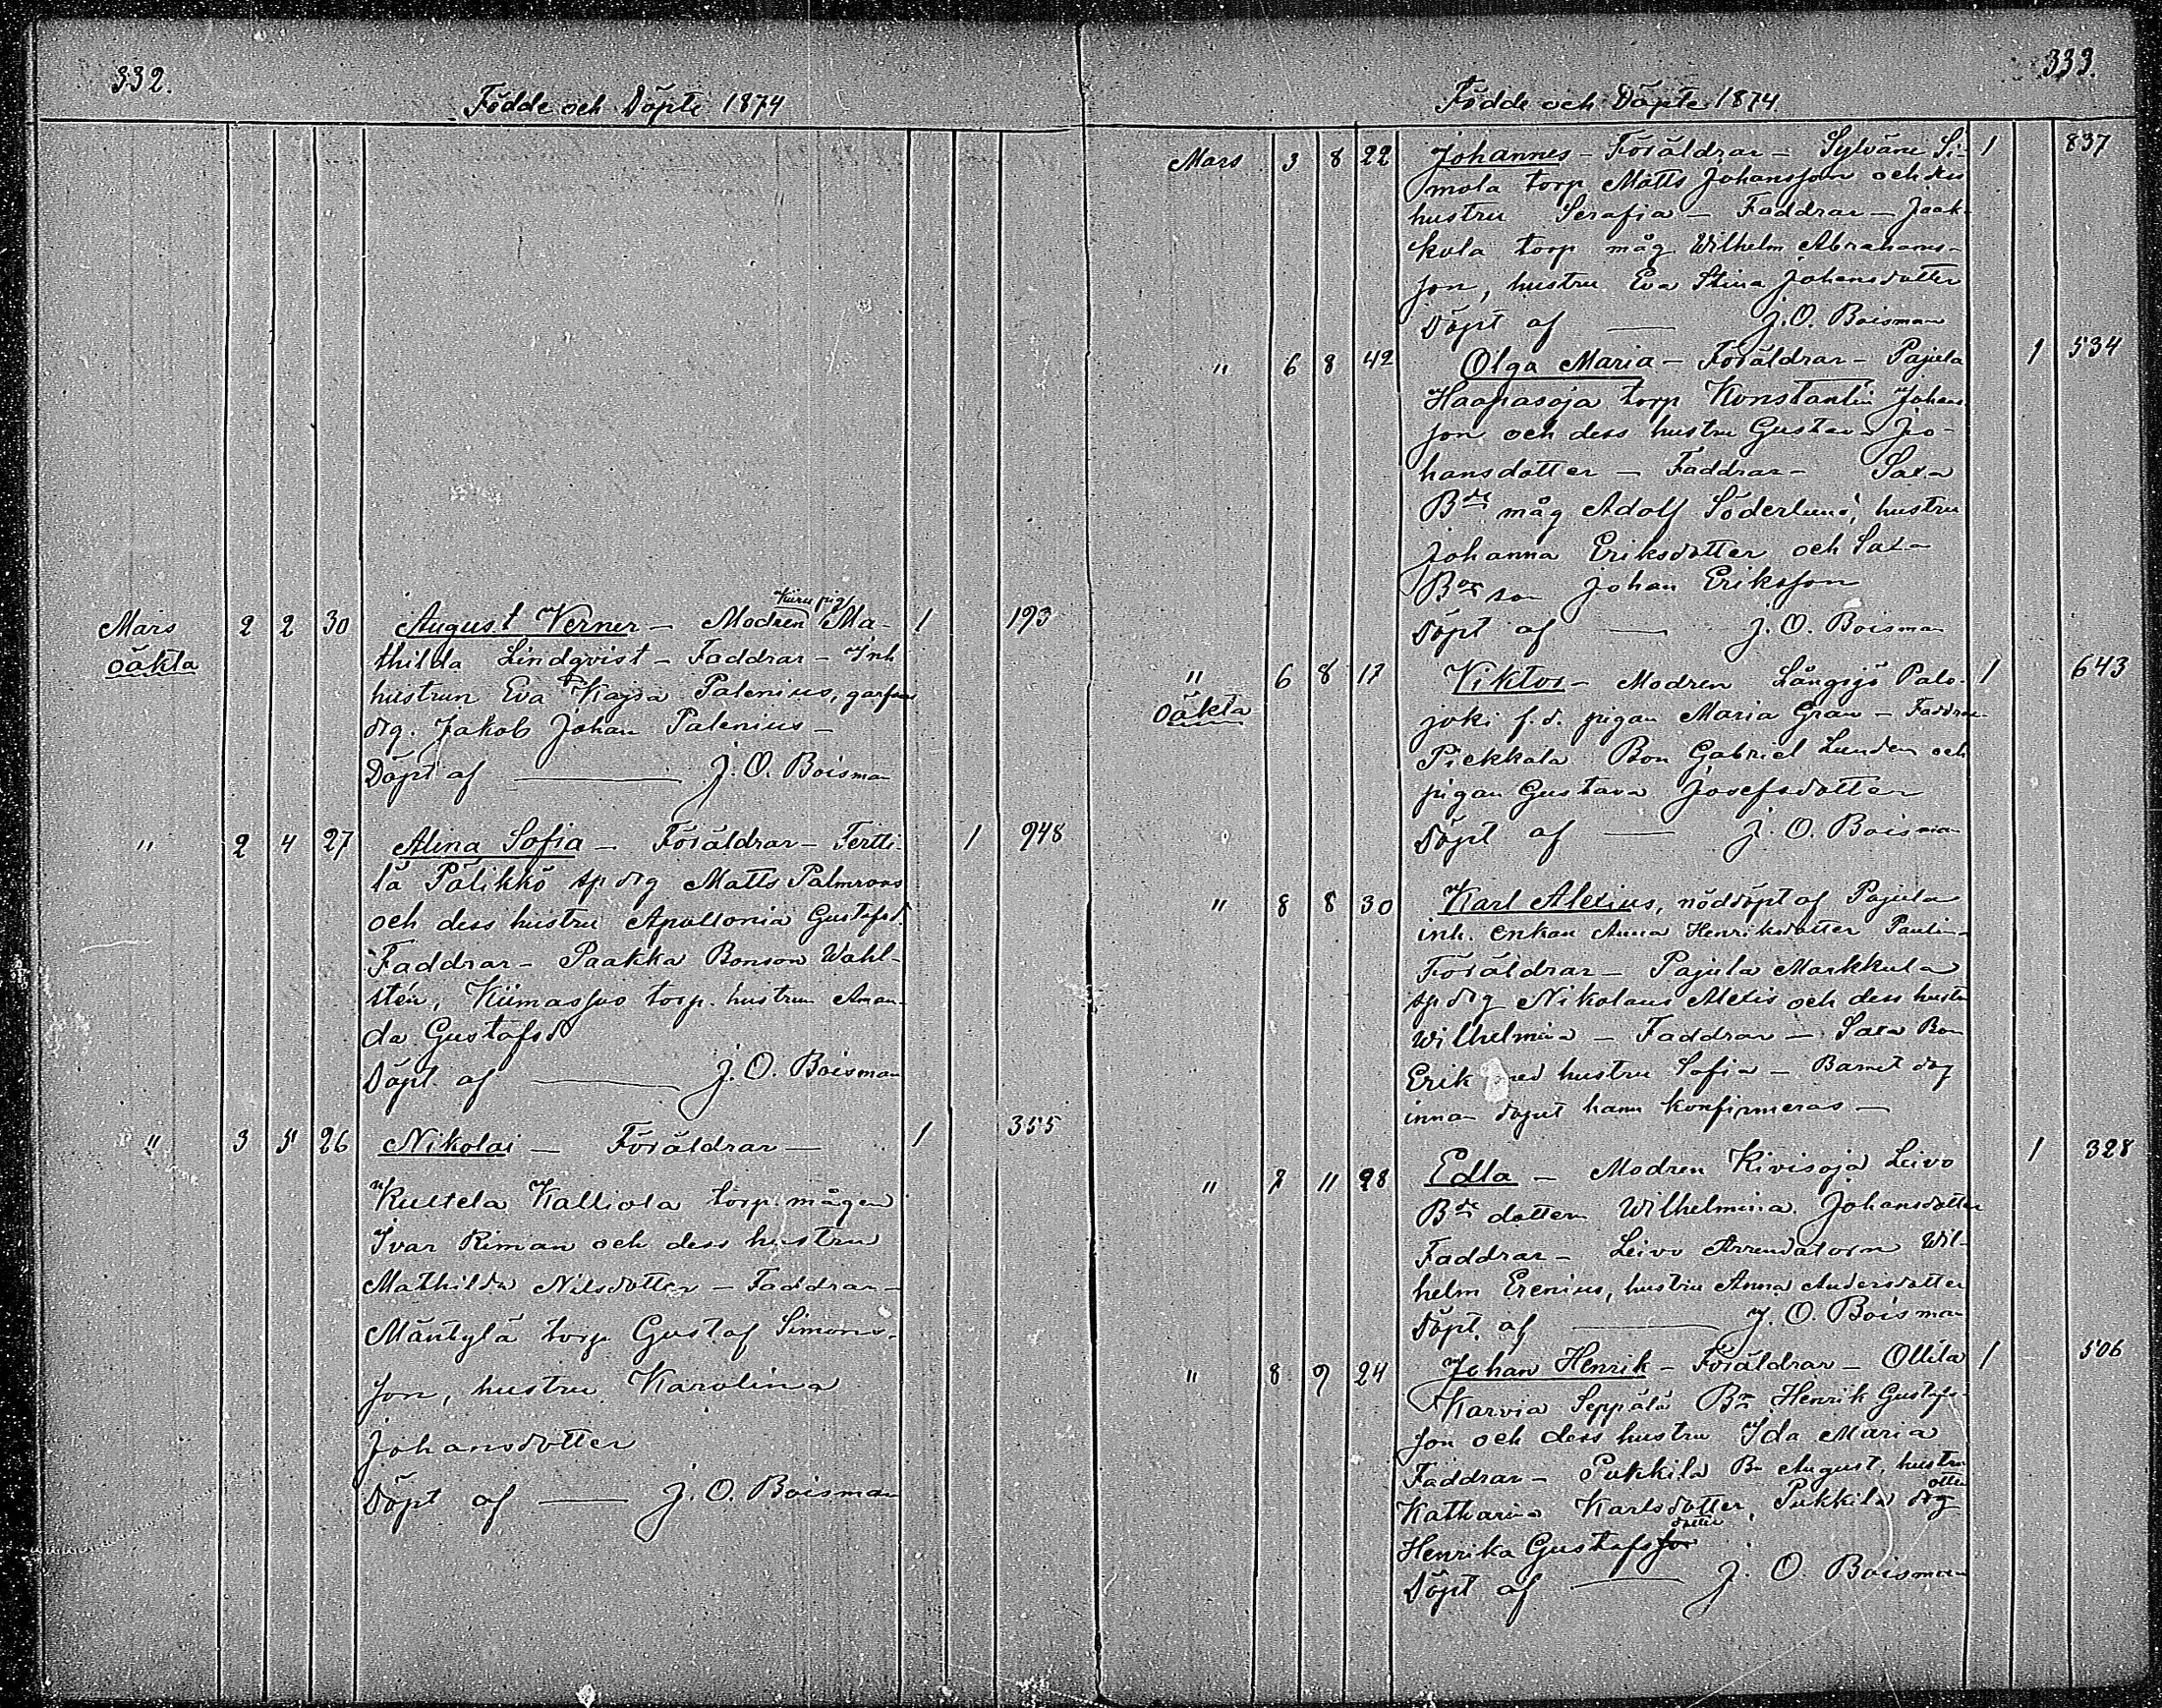 332.
Födde och Döpte 1874
Mars 2 2 30 August Verner — Modren Kiiru pig. Ma- 1 193
oäkta thilda Lindqvist — Faddrar — Inh
hustrun Eva Kajsa Palenius, garfvare
drg. Jakob Johan Palenius —
Döpt af — J. O. Boisman
" 2 4 27 Alina Sofia — Föräldrar — Tertti- 1 948
lä Pälikkö sp drg Matts Palmroos
och dess hustru Apollonia Gustafsd.
Faddrar — Paakka Bonson Wahl-
stén, Kiimassuo torp. hustrun Aman-
da Gustafsd
Döpt af — J. O. Boisman
" 3 5 26 Nikolai — Föräldrar — 1 355
Kultela Kalliola torp. mågen
Ivar Riman och dess hustru
Mathilda Nilsdotter — Faddrar —
Mäntylä torp Gustaf Simons-
son, hustru Karolina
Johansdotter
Döpt af — J. O. Boisman
333.
Födde och Döpte 1874
Mars 3 8 22 Johannes — Föräldrar — Sylväne Si- 1 837
mola torp Matts Johansson och dess
hustru Serafia — Faddrar — Jaak-
kola torp måg Wilhelm Abrahams-
son, hustru Eva Stina Johansdotter
Döpt af — J. O. Boisman
" 6 8 42 Olga Maria — Föräldrar — Pajula 1 534
Haapasoja torp Konstantin Johans-
son och dess hustru Gustava Jo-
hansdotter — Faddrar — Saxa
Bde måg Adolf Söderlund, hustru
Johanna Eriksdotter och Saxa
Bde son Johan Eriksson
Döpt af — J. O. Boisman
" 6 8 17 Viktor — Modren Långsjö Palo- 1 643
oäkta joki f.d. pigan Maria Gran — Faddrar
Piekkala Bon Gabriel Lunden och
pigan Gustava Josefsdotter
Döpt af — J. O. Boisman
" 8 8 30 Karl Alexius, nöddöpt af Pajula
inh. enkan Anna Henriksdotter Paulin —
Föräldrar — Pajula Markkula
sp drg Nikolaus Alexis och dess hustru
Wilhelmina — Faddrar — Saxa Bon
Erik med hustru Sofia — Barnet dog
innan dopet hann konfirmeras —
" 7 11 28 Edla — Modren Kivisoja Leivo 1 328
Bde dottern Wilhelmina Johansdotter
Faddrar — Leivo Arrendatorn Wil-
helm Erenius, hustru Anna Andersdotter
Döpt af — J. O. Boisman
" 8 9 24 Johan Henrik — Föräldrar — Ollila 1 506
Karvia Seppälä Bn Henrik Gustafs-
son och dess hustru Ida Maria
Faddrar — Pukkila Bn August, hustru
Katharina Karlsdotter, Pukkila dotter
Henrika Gustafsdotter
Döpt af — J. O. Boisman